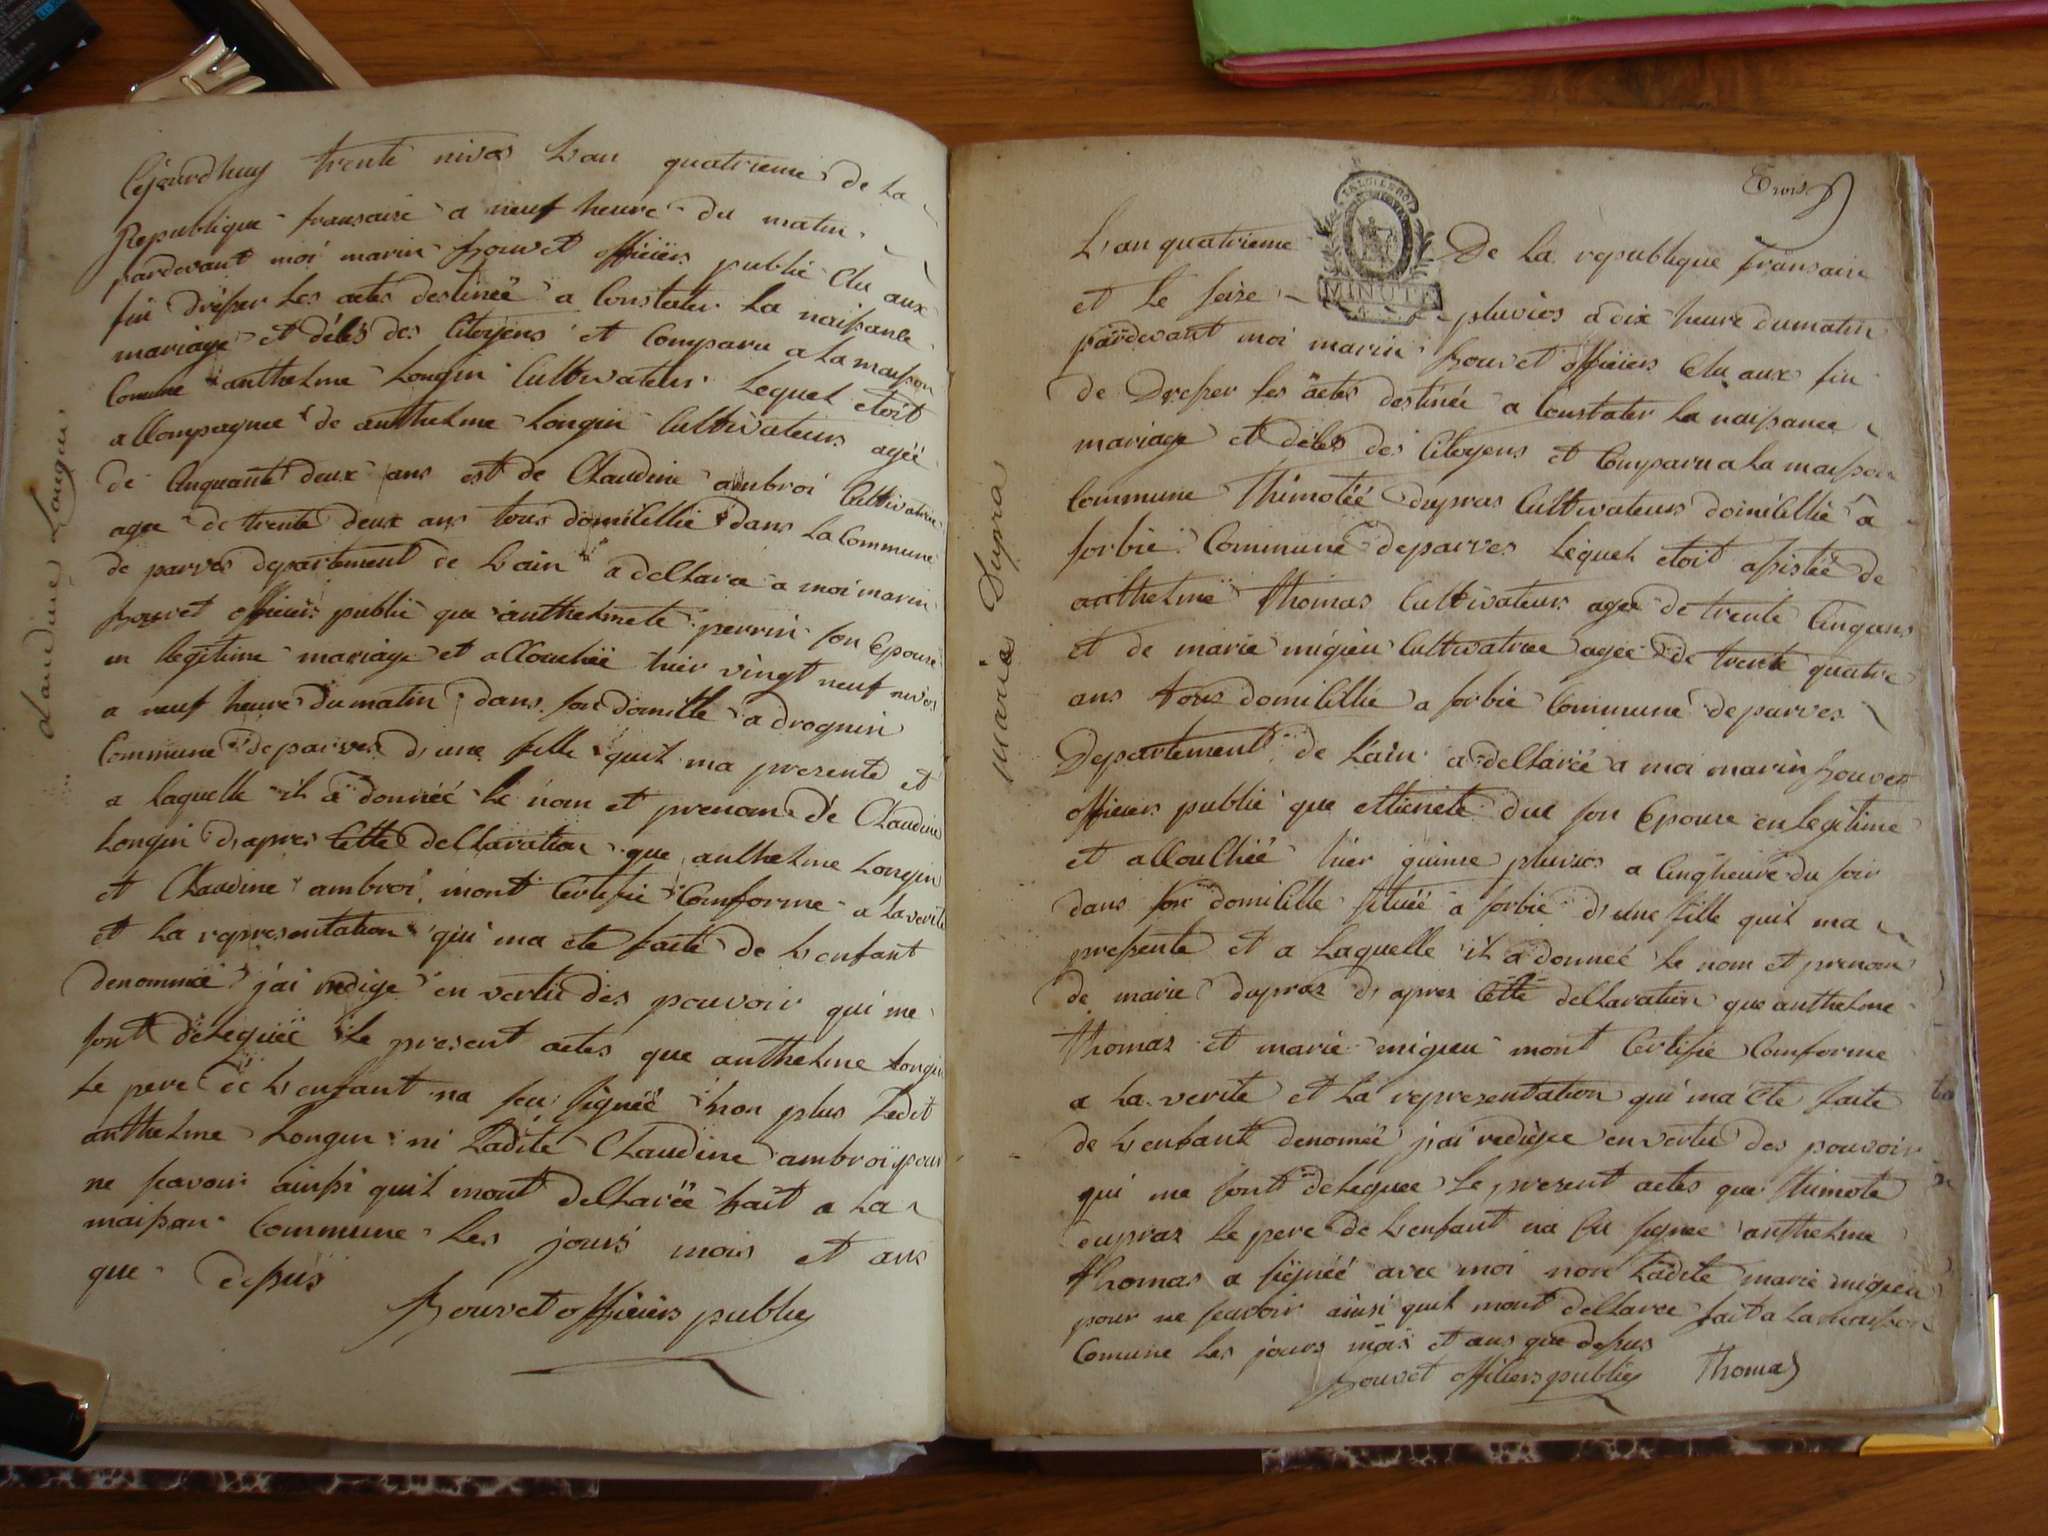 Claudine Longin
Cejourdhuy trente nivos Lan quatrieme de La
Republique fransaise a neuf heure du matin
pardevant moi marin Bouvet officiers public Elu aux
fin dresser Les actes destinée a Constater La naissance
mariage et décés des Citoyens et Comparu a La maison
Comune anthelme Longin Cultivateur Lequel etoit
aCCompagnee de anthelme Longin Cultivateurs ageé
de Cinquante deux ans est de Claudine ambroi Cultivatrice
agee de trente deux ans tous domicillie dans La Commune
de parves departement de Lain a deClara a moi marin
Bouvet officiers public que anthelmete perrin son Epouse
en Legitime mariage et aCCouchée hier vingt neuf nivos
a neuf heure du matin dans son domicille a drognin
Commune de parves d'une fille quil ma presente et
a Laquelle il a donneé Le nom et prenom de Claudine
Longin d'apres Cette deClaration que anthelme Longin
et Claudine ambroi mont Certifie Comforme a La verite
et La representation qui ma ete faite de L'enfant
denommée j'ai redige en vertu des pouvoir qui me
sont deleguée Le present actes que anthelme Longin
Le pere de L'enfant na seu signeé non plus Ledit
anthelme Longin ni Ladite Claudine ambroi pour
ne scavoir ainssi quil mont deClareé fait a La
maison Commune Les jours mois et ans
que dessus
Bouvet officiers public
Marie Dupra
Trois
Lan quatrieme De La republique fransaise
MINUTE
et Le seize pluvios a dix heure du matin
pardevant moi marin Bouvet officiers Elu aux fin
de Dresser Les actes destinée a Constater La naissance
mariage et décés des Citoyens et Comparu a La maison
Commune Thimoteé dupras Cultivateurs domicillié à
sorbie Commune de parves Lequel etoit assisteé de
anthelme Thomas Cultivateurs agee de trente Cinq ans
et de marie migieu Cultivatrice ageé de trente quatre
ans tous domicillie a sorbie Commune de parves
Departement de L'ain a deClareé a moi marin Bouvet
officiers public que ettienete duc son Epouse en Legitime
et aCCouchée hier quinse pluvios a Cinq heure du soir
dans son domicille situeé a sorbie d'une fille quil ma
pressente et a Laquelle il a donneé Le nom et prenom
de marie dupraz d'apres Cette deClaration que anthelme
Thomas et marie migieu mont Certifie Comforme
a La verite et La representation qui ma ete faite
de L'enfant denomée j'ai redige en vertu des pouvoir
qui me sont deleguee Le present actes que thimote
dupraz Le pere de L'enfant na su signee anthelme
Thomas a signeé avec moi non Ladite marie migieu
pour ne scavoir ainsi quil mont deClaree fait a La maison
Comune Les jours mois et ans que dessus
Bouvet officiers public Thomas